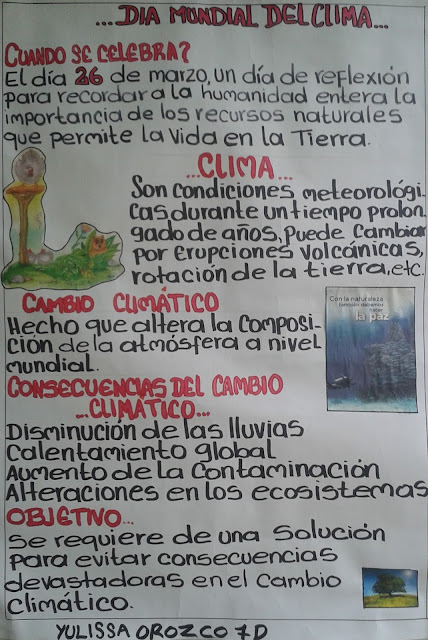 ...DIA MUNDIAL DEL CLIMA...
CUANDO SE CELEBRA?
El día 26 de marzo, un día de reflexión
para recordar a la humanidad entera la
importancia de los recursos naturales
que permite la vida en la Tierra.
...CLIMA...
Son condiciones meteorológi-
cas durante un tiempo prolon-
gado de años, puede cambiar
por erupciones volcánicas,
rotación de la tierra, etc.
CAMBIO CLIMÁTICO
Hecho que altera la composi-
ción de la atmósfera a nivel
mundial.
Con la naturaleza
también debemos
hacer
la paz
CONSECUENCIAS DEL CAMBIO
...CLIMÁTICO...
Disminución de las lluvias
Calentamiento global
Aumento de la contaminación
Alteraciones en los ecosistemas
OBJETIVO...
Se requiere de una solución
para evitar consecuencias
devastadoras en el cambio
climático.
YULISSA OROZCO 7D